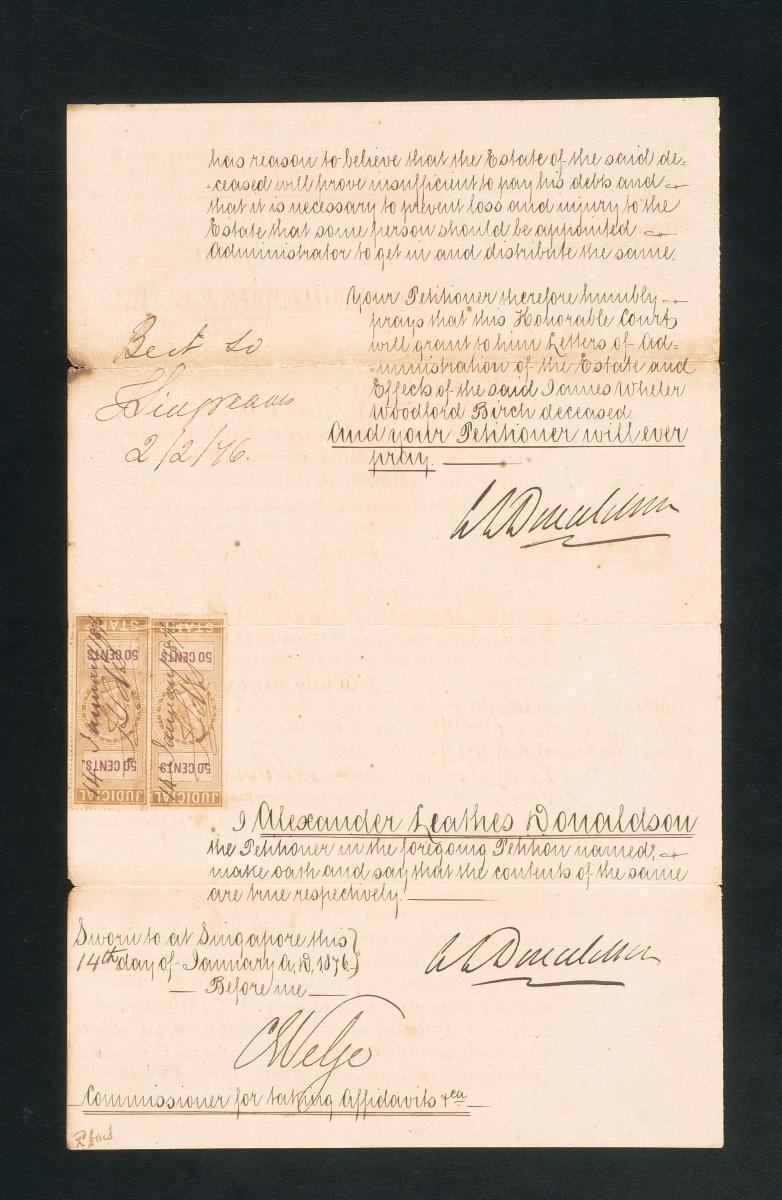 has reason to believe that the Estate of the said de=
=ceased will prove insufficient to pay his debts and
that it is necessary to prevent loss and injury to the
Estate that some person should be appointed
Administrator to get in and distribute the same.
Your Petitioner therefore humbly
prays that this Honorable Court
will grant to him Letters of Ad=
=ministration of the Estate and
Effects of the said James Wheler
Woodford Birch deceased.
And your Petitioner will ever
pray.
A L Donaldson
2/2/76.
STAMP STAMP
50 CENTS 50 CENTS
14 January 14 January
50 CENTS 50 CENTS
JUDICIAL JUDICIAL
I Alexander Leathes Donaldson
the Petitioner in the foregoing Petition named,
make oath and say that the contents of the same
are true respectively.
Sworn to at Singapore this
14th day of January A.D. 1876
A L Donaldson
Before me
Commissioner for taking Affidavits &ca